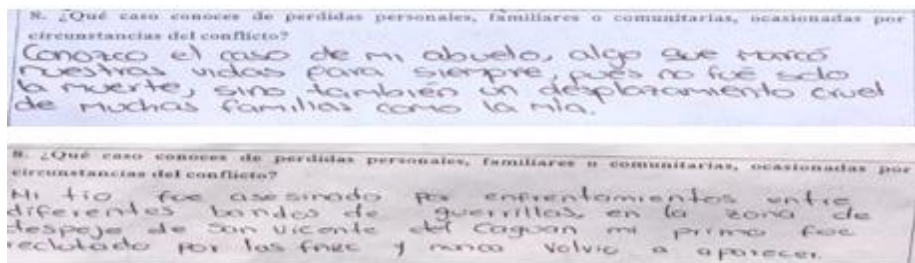 8. ¿Qué caso conoces de perdidas personales, familiares o comunitarias, ocasionadas por
circunstancias del conflicto?
Conozco el caso de mi abuelo, algo que marcó
nuestras vidas para siempre, pués no fué solo
la muerte, sino también un desplazamiento cruel
de muchas familias como la mía.
8. ¿Qué caso conoces de perdidas personales, familiares o comunitarias, ocasionadas por
circunstancias del conflicto?
Mi tio fue asesinado por enfrentamientos entre
diferentes bandos de guerrillas, en la zona de
despeje de San vicente del Caguan mi primo fue
reclutado por las farc y nunca volvio a aparecer.